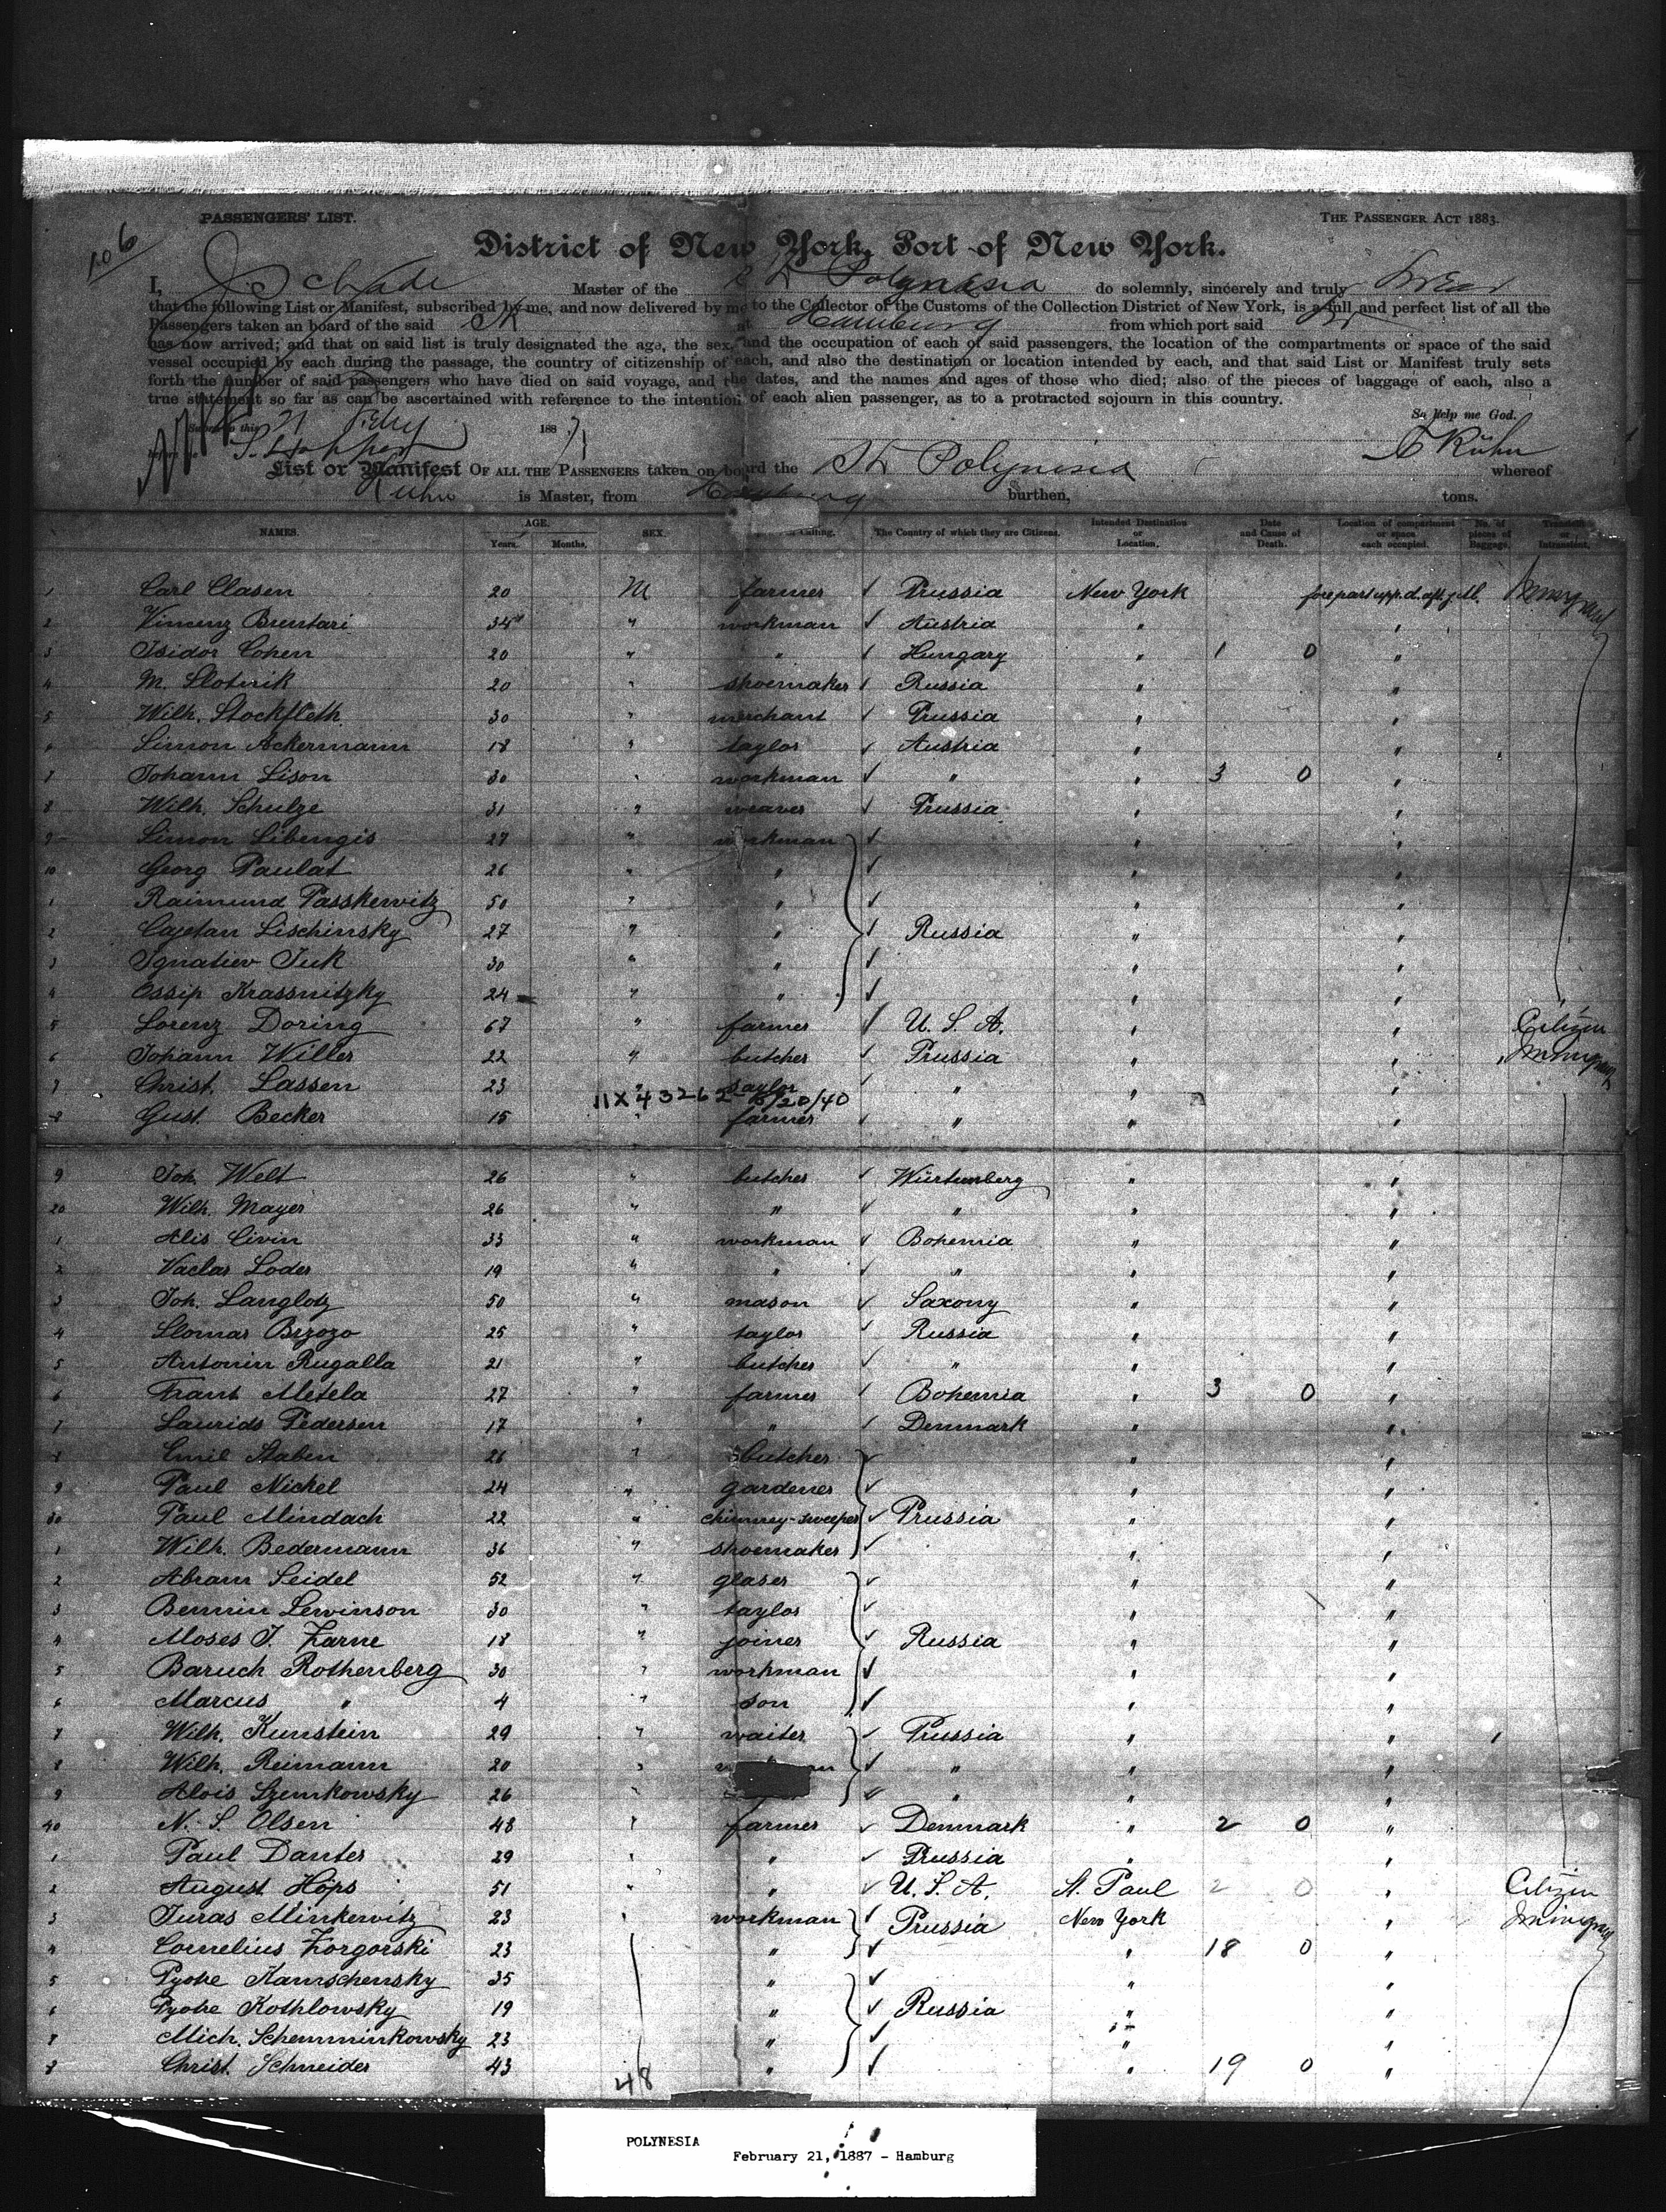 PASSENGERS' LIST. THE PASSENGER ACT 1883.
106
District of New York, Port of New York.
I, Master of the St Polynesia do solemnly, sincerely and truly swear
that the following List or Manifest, subscribed by me, and now delivered by me to the Collector of the Customs of the Collection District of New York, is a full and perfect list of all the
Passengers taken on board of the said St at Hamburg from which port said St
has now arrived; and that on said list is truly designated the age, the sex, and the occupation of each of said passengers, the location of the compartments or space of the said
vessel occupied by each during the passage, the country of citizenship of each, and also the destination or location intended by each, and that said List or Manifest truly sets
forth the number of said passengers who have died on said voyage, and the dates, and the names and ages of those who died; also of the pieces of baggage of each, also a
true statement so far as can be ascertained with reference to the intention of each alien passenger, as to a protracted sojourn in this country.
So help me God.
21 188 7
C Kühn
List or Manifest OF ALL THE PASSENGERS taken on board the St Polynesia whereof
Kühn is Master, from Hamburg burthen, tons.
NAMES. AGE. Years. Months. SEX. Calling. The Country of which they are Citizens. Intended Destination or Location. Date and Cause of Death. Location of compartment or space each occupied. No. of pieces of Baggage. Transient or Intransient.
1 Carl Clasen 20 M farmer ✓ Prussia New York fore part upp. d. aft. g. M.
2 Vincenz Brentari 34 " workman ✓ Austria " "
3 Isidor Cohen 20 " " ✓ Hungary " 1 0 "
4 M. Slotnik 20 " shoemaker ✓ Russia " "
5 Wilh. Stockfleth 30 " merchant ✓ Prussia " "
6 Simon Ackermann 18 " taylor ✓ Austria " "
7 Johann Lison 30 " workman ✓ " " 3 0 "
8 Wilh. Schulze 31 " weaver ✓ Prussia " "
9 Simon Libengis 27 " workman ✓ " "
10 Georg Paulat 26 " " ✓ " "
1 Raimund Passkewitz 50 " " ✓ " "
2 Cajetan Lischinsky 27 " " ✓ Russia " "
3 Ignatiev Juk 30 " " ✓ " "
4 Ossip Krassnitzky 24 " " ✓ " "
5 Lorenz Doring 67 " farmer ✓ U. S. A. " " Citizen
6 Johann Willer 22 " butcher ✓ Prussia " "
7 Christ. Lassen 23 " taylor ✓ " " "
11X43262 5/20/40
8 Gust. Becker 15 " farmer ✓ " " "
9 Joh. Welt 26 " butcher ✓ Würtemberg " "
20 Wilh. Mayer 26 " " ✓ " " "
1 Alis Civin 33 " workman ✓ Bohemia " "
2 Vaclar Loder 19 " " ✓ " " "
3 Joh. Langlotz 50 " mason ✓ Saxony " "
4 Slomar Brzozo 25 " taylor ✓ Russia " "
5 Antonin Rugalla 21 " butcher ✓ " " "
6 Frant Metela 27 " farmer ✓ Bohemia " 3 0 "
7 Laurids Pedersen 17 " " ✓ Denmark " "
8 Emil Staben 26 " butcher ✓ " "
9 Paul Nickel 24 " gardener ✓ " "
30 Paul Mindach 22 " chimney-sweeper ✓ Prussia " "
1 Wilh. Bedermann 36 " shoemaker ✓ " "
2 Abram Seidel 52 " glaser ✓ " "
3 Bennin Lewinson 30 " taylor ✓ " "
4 Moses J. Zarne 18 " joiner ✓ Russia " "
5 Baruch Rothenberg 30 " workman ✓ " "
6 Marcus " 4 " son ✓ " "
7 Wilh. Kunstein 29 " waiter ✓ Prussia " "
8 Wilh. Reimann 20 " ✓ " " "
9 Alois Szemkowsky 26 " ✓ " " "
40 N. S. Olsen 48 " farmer ✓ Denmark " 2 0 "
1 Paul Danter 29 " " ✓ Prussia " "
2 August Höps 51 " " ✓ U. S. A. St. Paul 2 0 " Citizen
3 Juras Minkewitz 23 " workman ✓ Prussia New York "
4 Cornelius Zorgorski 23 " ✓ " 18 0 "
5 Pyotre Kamschensky 35 " ✓ " "
6 Pyotre Kothlowsky 19 " ✓ Russia " "
7 Mich. Schemminkowsky 23 " ✓ " "
8 Christ. Schneider 43 " ✓ " 19 0 "
48
POLYNESIA
February 21, 1887 - Hamburg